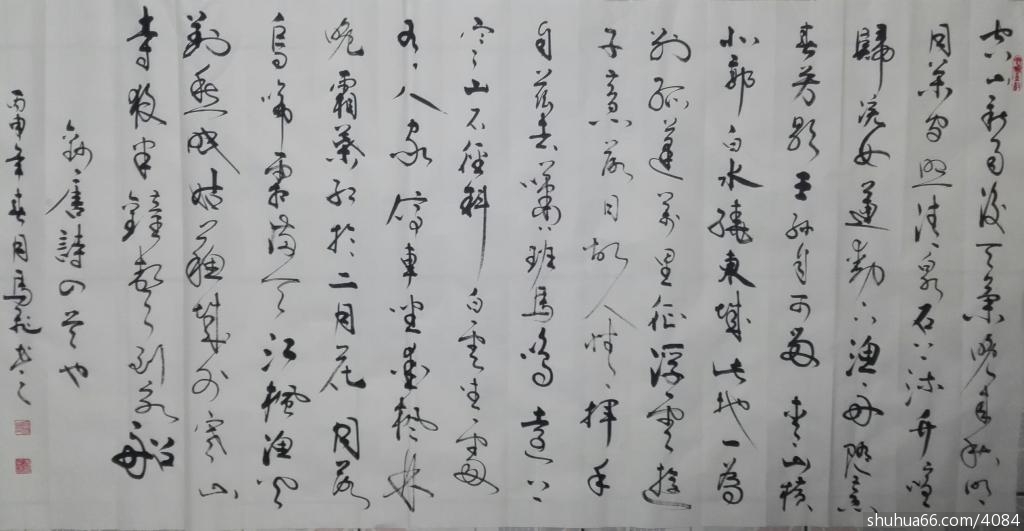 空山新雨後天氣晚來秋明
月松間照清泉石上流竹喧
歸浣女蓮動下漁舟隨意
春芳歇王孫自可留青山橫
北郭白水繞東城此地一為
別孤蓬萬里征浮雲遊
子意落日故人情揮手
自茲去蕭蕭班馬鳴遠上
寒山石徑斜白雲生處
有人家停車坐愛楓林
晚霜葉紅於二月花月落
烏啼霜滿天江楓漁火
對愁眠姑蘇城外寒山
寺夜半鐘聲到客船
唐詩四首也
丙申年春月馬書之
shuhua66.com/4084